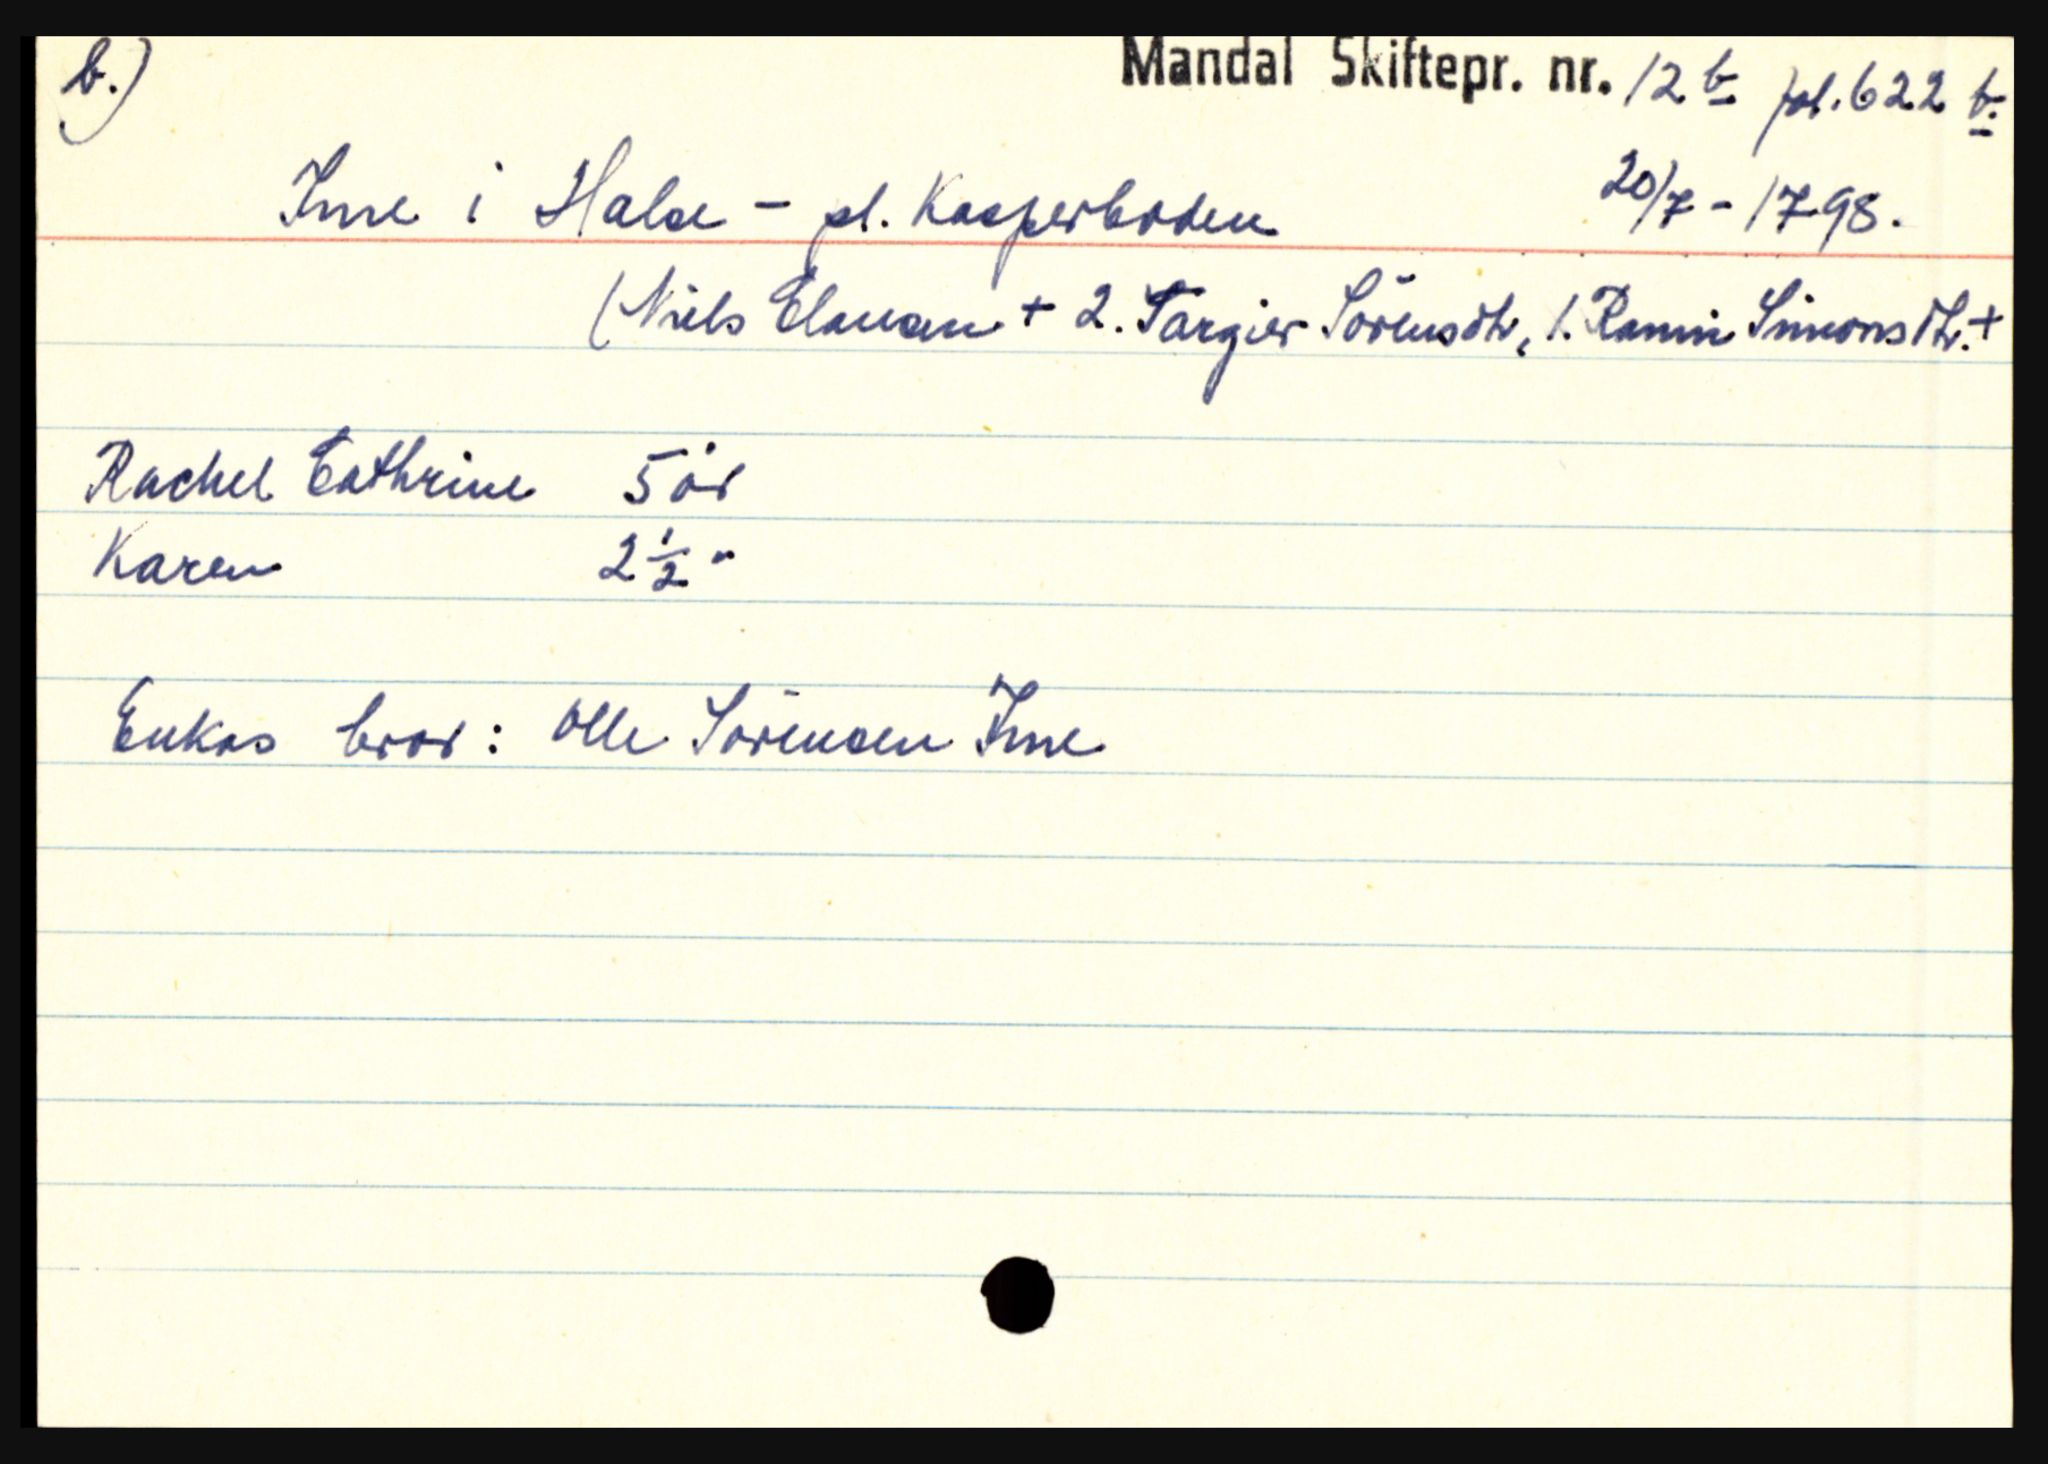 b.) Mandal Skiftepr. nr. 12 b fol. 622 b.
Ime i Halse - pl. Kasperboden 20/7 - 1798.
(Niels Elausen + 2. Targier Sörensdtr, 1. Ranni Simonsdtr. +
Rachel Cathrine 5 år
Karen 2 1/2 "
Enkas bror: Olle Sörensen Ime